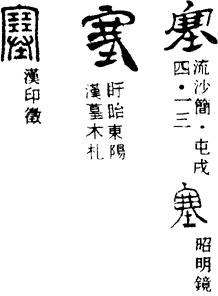 塞
流沙簡・屯戍
四・一三
塞
昭明鏡
塞
盱眙東陽
漢墓木札
塞
漢印徵